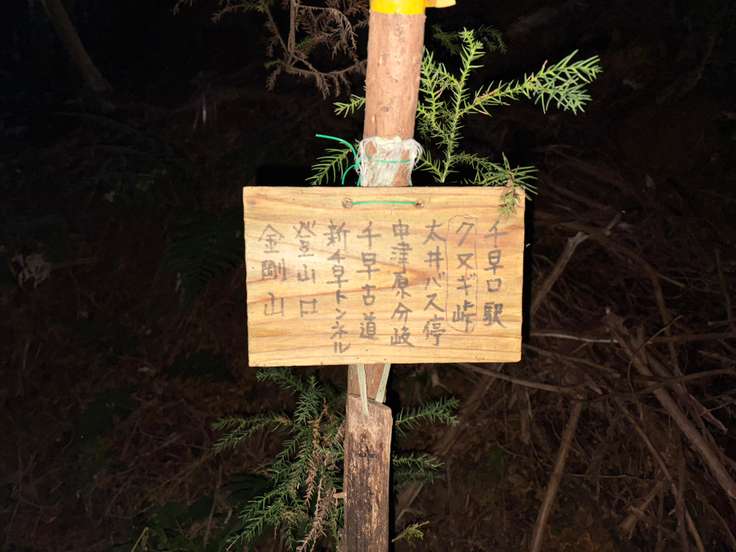 千早口駅
(クヌギ峠)
大井バス停
中津原分岐
千早古道
新千早トンネル
登山口
金剛山